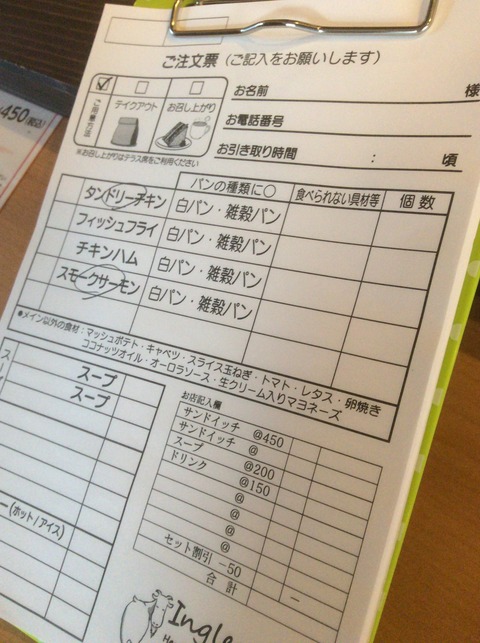 ご注文票（ご記入をお願いします）
ご利用方法
テイクアウト
お召し上がり
※お召し上がりはテラス席をご利用ください
お名前 様
お電話番号
お引き取り時間 : 頃
450(税込)
パンの種類に○ 食べられない具材等 個数
タンドリーチキン 白パン・雑穀パン
フィッシュフライ 白パン・雑穀パン
チキンハム 白パン・雑穀パン
スモークサーモン 白パン・雑穀パン
●メイン以外の食材：マッシュポテト・キャベツ・スライス玉ねぎ・トマト・レタス・卵焼き
ココナッツオイル・オーロラソース・生クリーム入りマヨネーズ
スープ
スープ
(ホット/アイス)
お店記入欄
サンドイッチ @450
サンドイッチ @
スープ @200
ドリンク @150
@
@
@
@
セット割引 -50
合計 -
Ingle